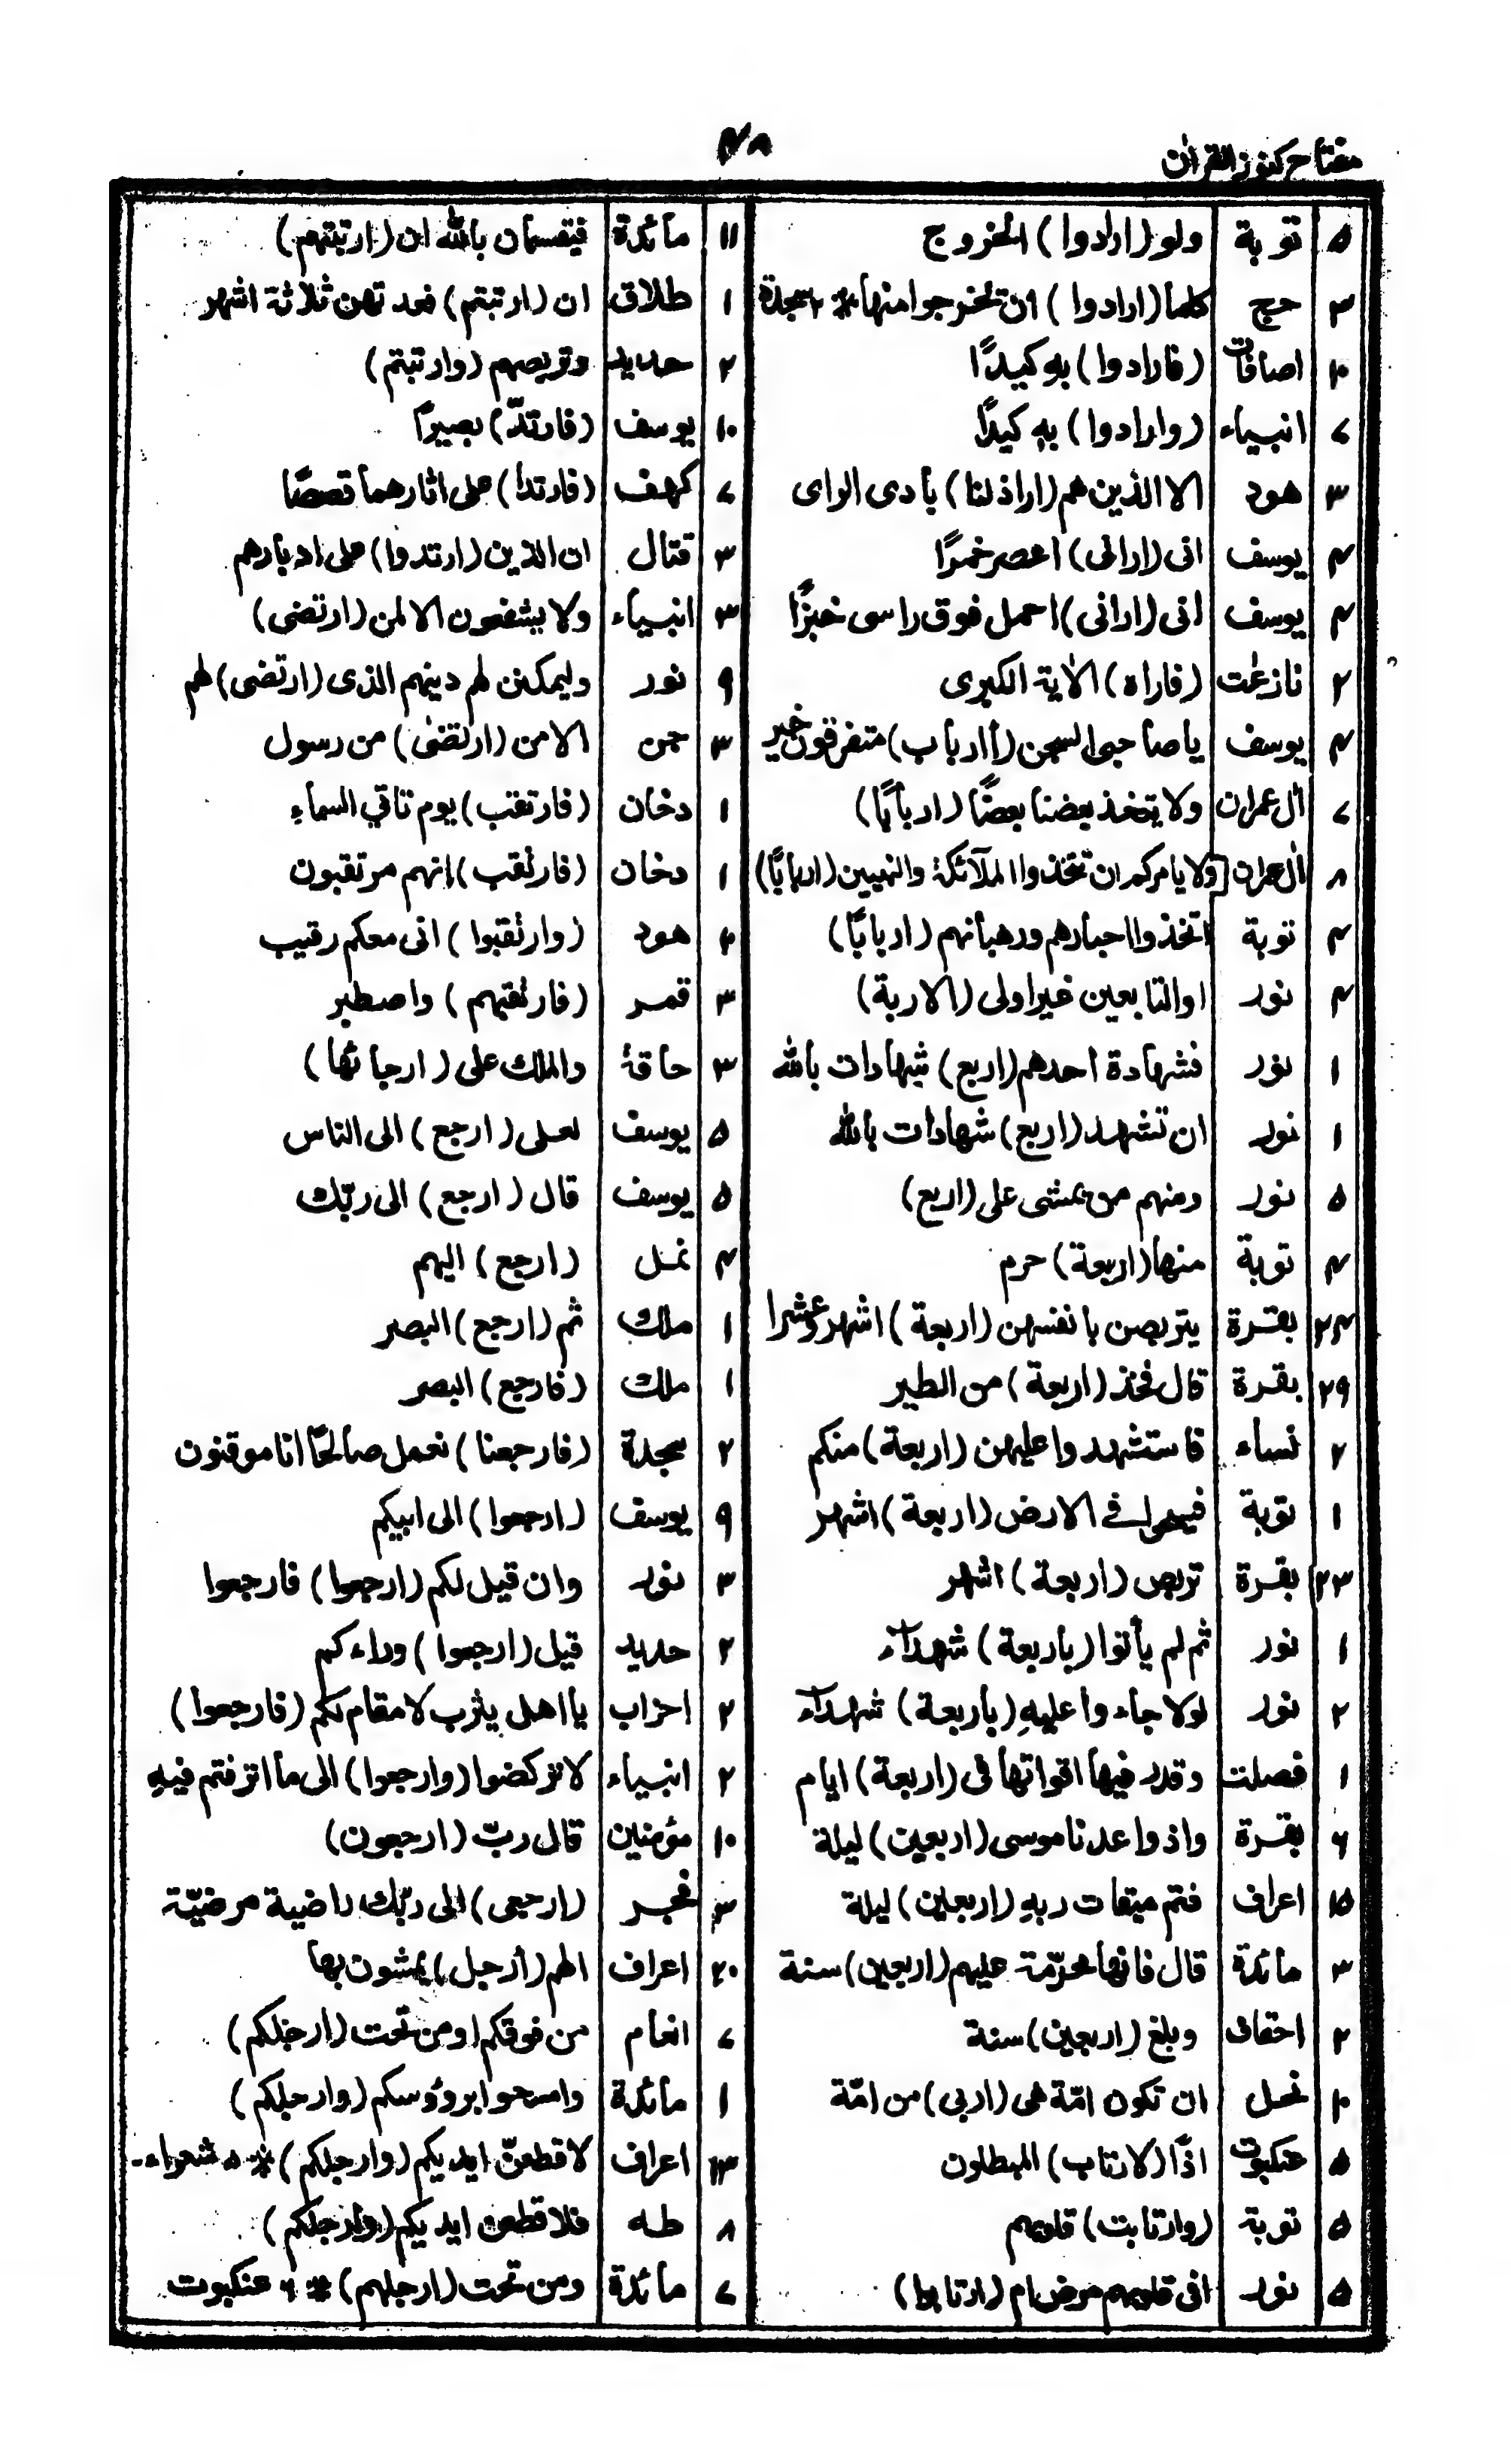 مفتاح كنوز القران
۴۸
۵ توبة ولو (ارادوا) الخروج
۳ حج كلما (ارادوا) ان تخرجوا منها * ۲ سجدة
اصافات (فارادوا) به كيدًا
۷ انبياء (وارادوا) به كيدًا
۳ هود الا الذين هم (اراذلنا) بادى الراى
۴ يوسف انى (ارانى) اعصر خمرًا
۴ يوسف انى (ارانى) احمل فوق راسى خبزًا
۲ نازعت (فاراه) الاية الكبرى
۴ يوسف ياصاحبى السجن (أارباب) متفرقون خير
۷ ال عمران ولا يتخذ بعضنا بعضًا (اربابًا)
۸ ال عمران ولا يامركم ان تتخذوا الملآئكة والنبيين (اربابًا)
۴ توبة اتخذوا احبارهم ورهبانهم (اربابًا)
۴ نور اوالتابعين غيراولى (الاربة)
۱ نور فشهادة احدهم (اربع) شهادات بالله
۱ نور ان تشهد (اربع) شهادات بالله
۵ نور ومنهم من يمشى على (اربع)
۴ توبة منها (اربعة) حرم
۲۴ بقرة يتربصن بانفسهن (اربعة) اشهر وعشرا
۲۹ بقرة قال فخذ (اربعة) من الطير
۲ نساء فاستشهدوا عليهن (اربعة) منكم
۱ توبة فسيحوا فى الارض (اربعة) اشهر
۲۳ بقرة تربص (اربعة) اشهر
۱ نور ثم لم يأتوا (باربعة) شهدآء
۲ نور لولا جاءوا عليه (بأربعة) شهدآء
۱ فصلت وقدر فيها اقواتها فى (اربعة) ايام
۶ بقرة واذ واعدنا موسى (اربعين) ليلة
۱۵ اعراف فتم ميقات ربه (اربعين) ليلة
۳ مائدة قال فانها محرّمة عليهم (اربعين) سنة
۲ احقاف وبلغ (اربعين) سنة
نحل ان تكون امّة هى (اربى) من امّة
۵ عنكبوت اذًا (لارتاب) المبطلون
۵ توبة (وارتابت) قلوبهم
۵ نور افى قلوبهم مرض ام (ارتابوا)
۱۱ مائدة فيقسمان بالله ان (ارتبتم)
۱ طلاق ان (ارتبتم) فعدتهن ثلاثة اشهر
۲ حديد وتربصتم (وارتبتم)
۱۰ يوسف (فارتدّ) بصيرًا
۷ كهف (فارتدا) على اثارهما قصصًا
۳ قتال ان الذين (ارتدوا) على ادبارهم
۳ انبياء ولا يشفعون الا لمن (ارتضى)
۹ نور وليمكنن لهم دينهم الذى (ارتضى) لهم
۳ جن الا من (ارتضى) من رسول
۱ دخان (فارتقب) يوم تاتي السماء
۱ دخان (فارتقب) انهم مرتقبون
هود (وارتقبوا) انى معكم رقيب
۳ قمر (فارتقبهم) واصطبر
۳ حاقة والملك على (ارجائها)
۵ يوسف لعلى (ارجع) الى الناس
۵ يوسف قال (ارجع) الى ربّك
۴ نمل (ارجع) اليهم
۱ ملك ثم (ارجع) البصر
۱ ملك (فارجع) البصر
۲ سجدة (فارجعنا) نعمل صالحًا انا موقنون
۹ يوسف (ارجعوا) الى ابيكم
۳ نور وان قيل لكم (ارجعوا) فارجعوا
۲ حديد قيل (ارجعوا) وراءكم
۲ احزاب يا اهل يثرب لا مقام لكم (فارجعوا)
۲ انبياء لا تركضوا (وارجعوا) الى ما اترفتم فيه
۱۰ مؤمنين قال ربّ (ارجعون)
۳ فجر (ارجعى) الى ربّك راضية مرضيّة
۲۰ اعراف الهم (أرجل) يمشون بها
۷ انعام من فوقكم او من تحت (ارجلكم)
۱ مائدة وامسحوا برؤوسكم (وارجلكم)
۱۳ اعراف لاقطعنّ ايديكم (وارجلكم) * شعراء
۸ طه فلاقطعن ايديكم (وارجلكم)
۷ مائدة ومن تحت (ارجلهم) * ۶ عنكبوت